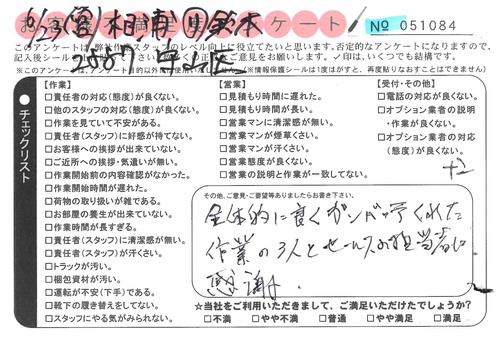 お客様 アンケート
№ 051084
6/23
このアンケートは、弊社作業スタッフのレベル向上に役立てたいと思います。否定的なアンケートになりますので、
※このアンケートは、
※情報保護シールは1度がすと、再度貼りなおすことはできません
チェックリスト
【作業】
□責任者の対応(態度)が良くない。
□他のスタッフの対応(態度)が良くない。
□作業を見ていて不安がある。
□責任者(スタッフ)に好感が持てない。
□お客様への挨拶が出来ていない。
□ご近所への挨拶・気遣いが無い。
□作業開始前の内容確認がなかった。
□作業開始時間が遅れた。
□荷物の取り扱いが雑である。
□お部屋の養生が出来ていない。
□作業時間が長すぎる。
□責任者(スタッフ)に清潔感が無い。
□責任者(スタッフ)が汗くさい。
□トラックが汚い。
□梱包資材が汚い。
□運転が不安(下手)である。
□靴下の履き替えをしてない。
□スタッフにやる気がみられない。
【営業】
□見積もり時間に遅れた。
□見積もり時間が長い。
□営業マンに清潔感が無い。
□営業マンが煙草くさい。
□営業マンが汗くさい。
□営業態度が良くない。
□営業の説明と作業が一致してない。
【受付・その他】
□電話の対応が良くない。
□オプション業者の説明
・作業が良くない。
□オプション業者の対応
(態度)が良くない。
その他、ご意見・ご要望等ありましたらお書き下さい。
全体的に良くガンバッテくれた
作業の3人とセールスの担当者に
感謝
☆当社をご利用いただきまして、ご満足いただけたでしょうか?
□不満 □やや不満 □普通 □やや満足 □満足